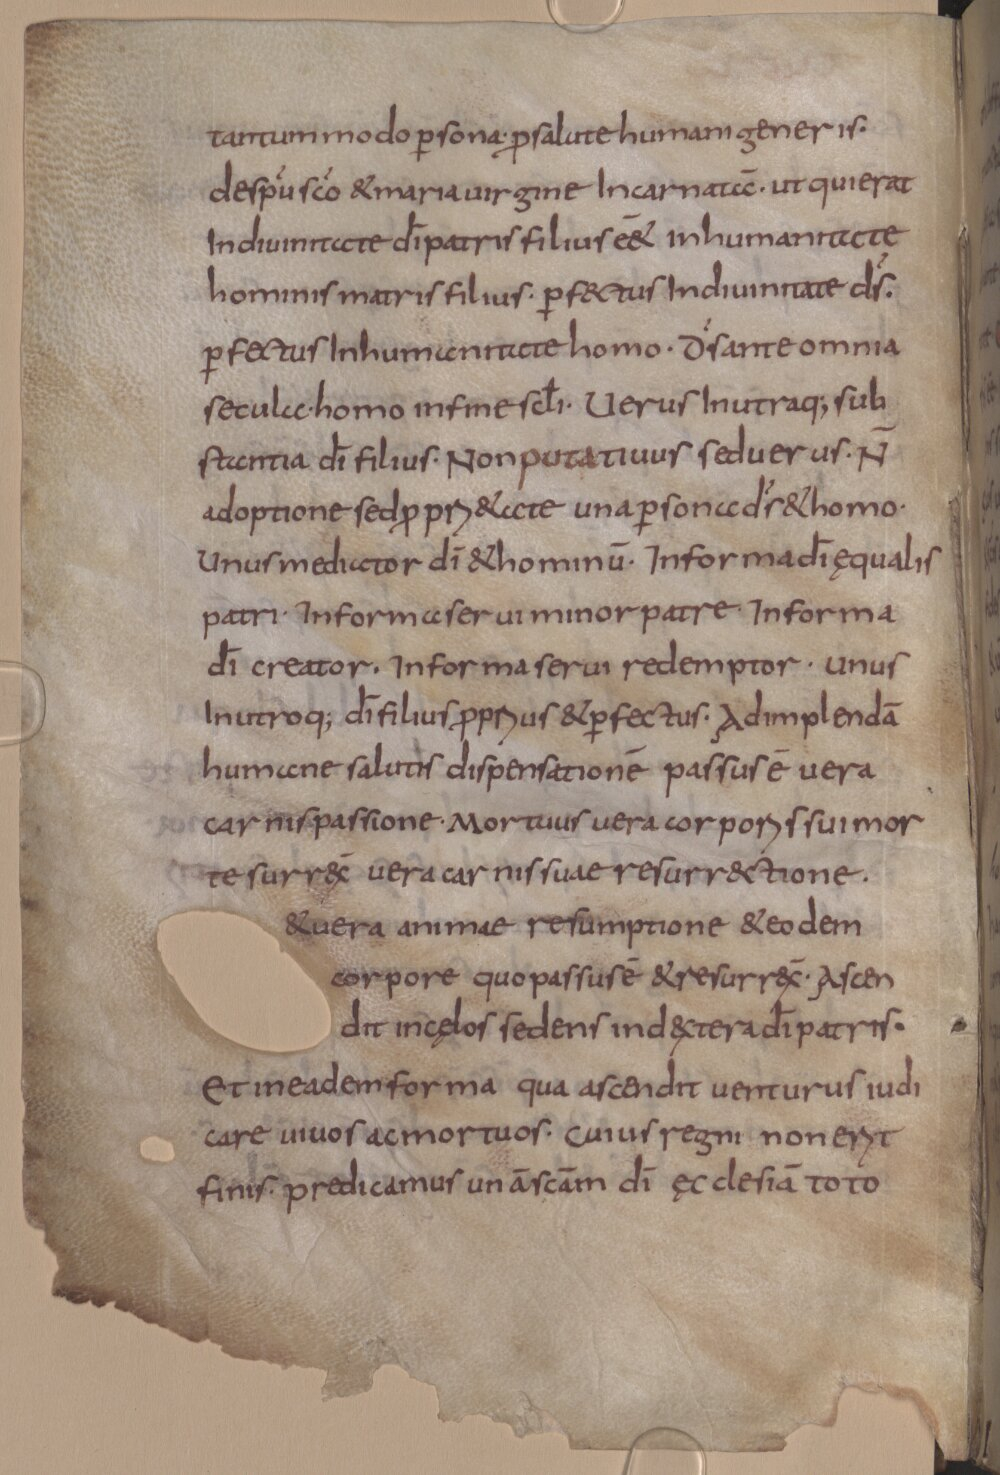 tantummodo ꝑsona· ꝓsalute humani generis·
despu̅ sc̅o &maria uirgine Incarnatꝰ c̅· ut quierat
Indiuinitate di̅ patris filius e̅& inhumanitate
hominis matris filius· ꝑfectus Indiuinitate ds̅·
ꝑfectus Inhumanitate homo· Ds̅ ante omnia
secula· homo infine scl̅i· Uerus Inutraq; sub
stantia di̅ filius· Non putatiuus seduerus· N̅
adoptione sed ꝓpꝛi&ate una ꝑsona ds̅ &homo·
Unus mediator di̅ &hominu̅· Informa di̅ ęqualis
patri· Informa serui minor patre· Informa
di̅ creator· Informa serui redemptor· unus
Inutroq; di̅ filius ꝓpꝛius &ꝑfectus· Adimplenda̅
humane salutis dispensatione̅ passus e̅ uera
carnis passione· Mortuus uera corporis sui mor
te surrex̅ uera carnis suae resurr&ctione·
&uera animae resumptione &eodem
corpore quo passus e̅ &resurrex̅· Ascen
dit incęlos sedens indextera di̅ patris·
Et ineadem forma qua ascendit uenturus iudi
care uiuos ac mortuos· Cuius regni non erit
finis· predicamus una̅ sca̅m di̅ ęcclesia̅ toto